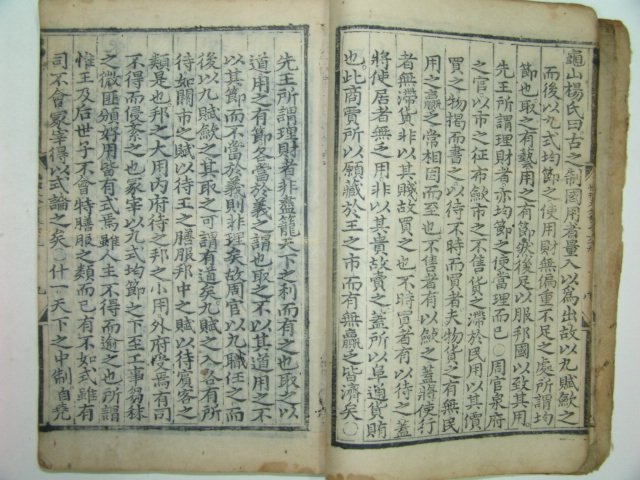 龜山楊氏曰古之制國用者量入以爲出故以九賦歛之
而後以九式均節之使用財無偏重不足之處所謂均
節也取之有藝用之有節然後足以服邦國以致其用
先王所謂理財者亦均節之使當理而已○周官泉府
之官以市之征布歛市之不售貨之滯於民用以其價
買之物揭而書之以待不時而買者夫物貨之有無民
用之贏乏常相因而至也不售者有以歛之蓋將使行
者無滯貨非以其賤故買之也不時買者有以待之蓋
將使居者無乏用非以其貴故賣之蓋所以阜通貨賄
也此商賈所以願藏於王之市而有無贏乏皆濟矣○
先王所謂理財者非盡籠天下之利而有之也取之以
道用之有節各當於義之謂也取之不以其道用之不
以其節而不當於義則非理矣故周官以九職任之而
後以九賦歛之其取之可謂有道矣九賦之入各有所
待如關市之賦以待王之膳服邦中之賦以待賓客之
類是也邦之大用內府待之邦之小用外府受焉有司
不得而侵紊之也冢宰以九式均節之下至工事芻秣
之微匪頒好用皆有式焉雖人主不得而逾之也所謂
惟王及后世子不會特膳服之類而已有不如式雖有
司不會冢宰得以式論之矣○什一天下之中制自堯